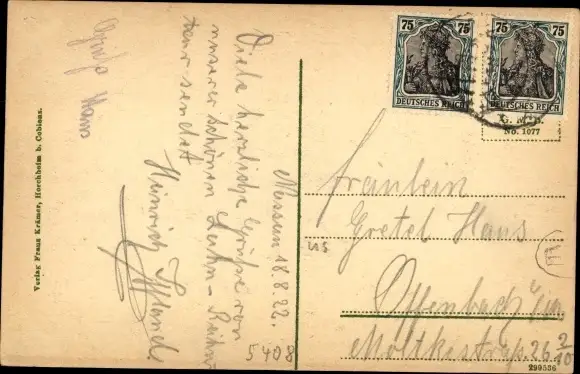 Nassau 18.8.22.
Viele herzliche Grüße von
unserer schönen Lahn-Rhein
tour sendet
Heinrich
Gruß Hans
5408
Verlag Franz Krämer, Horchheim b. Coblenz.
75 75
DEUTSCHES REICH
75 75
DEUTSCHES REICH
G. M. B.
No. 1077
Fräulein
Gretel Haus
Offenbach a/M
Moltkestraße 26
299556